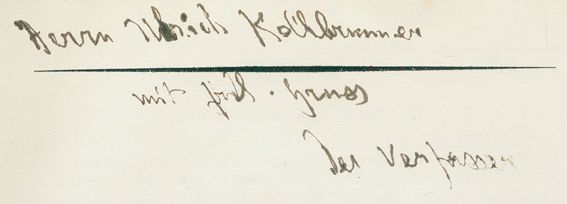 Herrn Ulrich Kollbrunner
mit frdl. Gruss
Der Verfasser